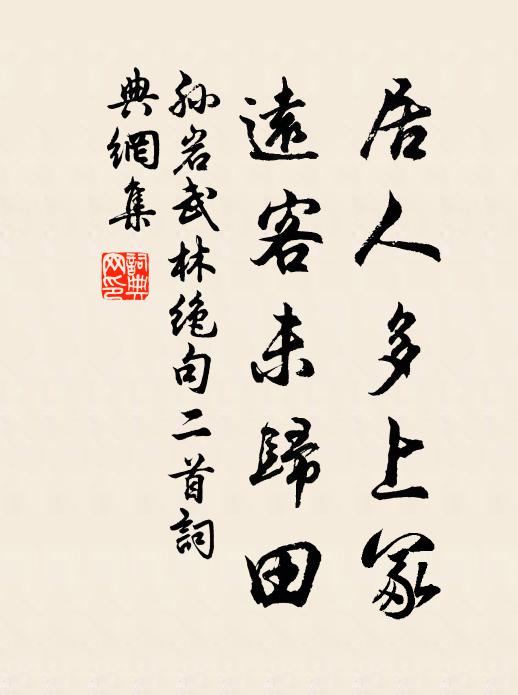 居人多上冢
遠客未歸田
孫岩武林绝句二首詞
典網集
詞典網印